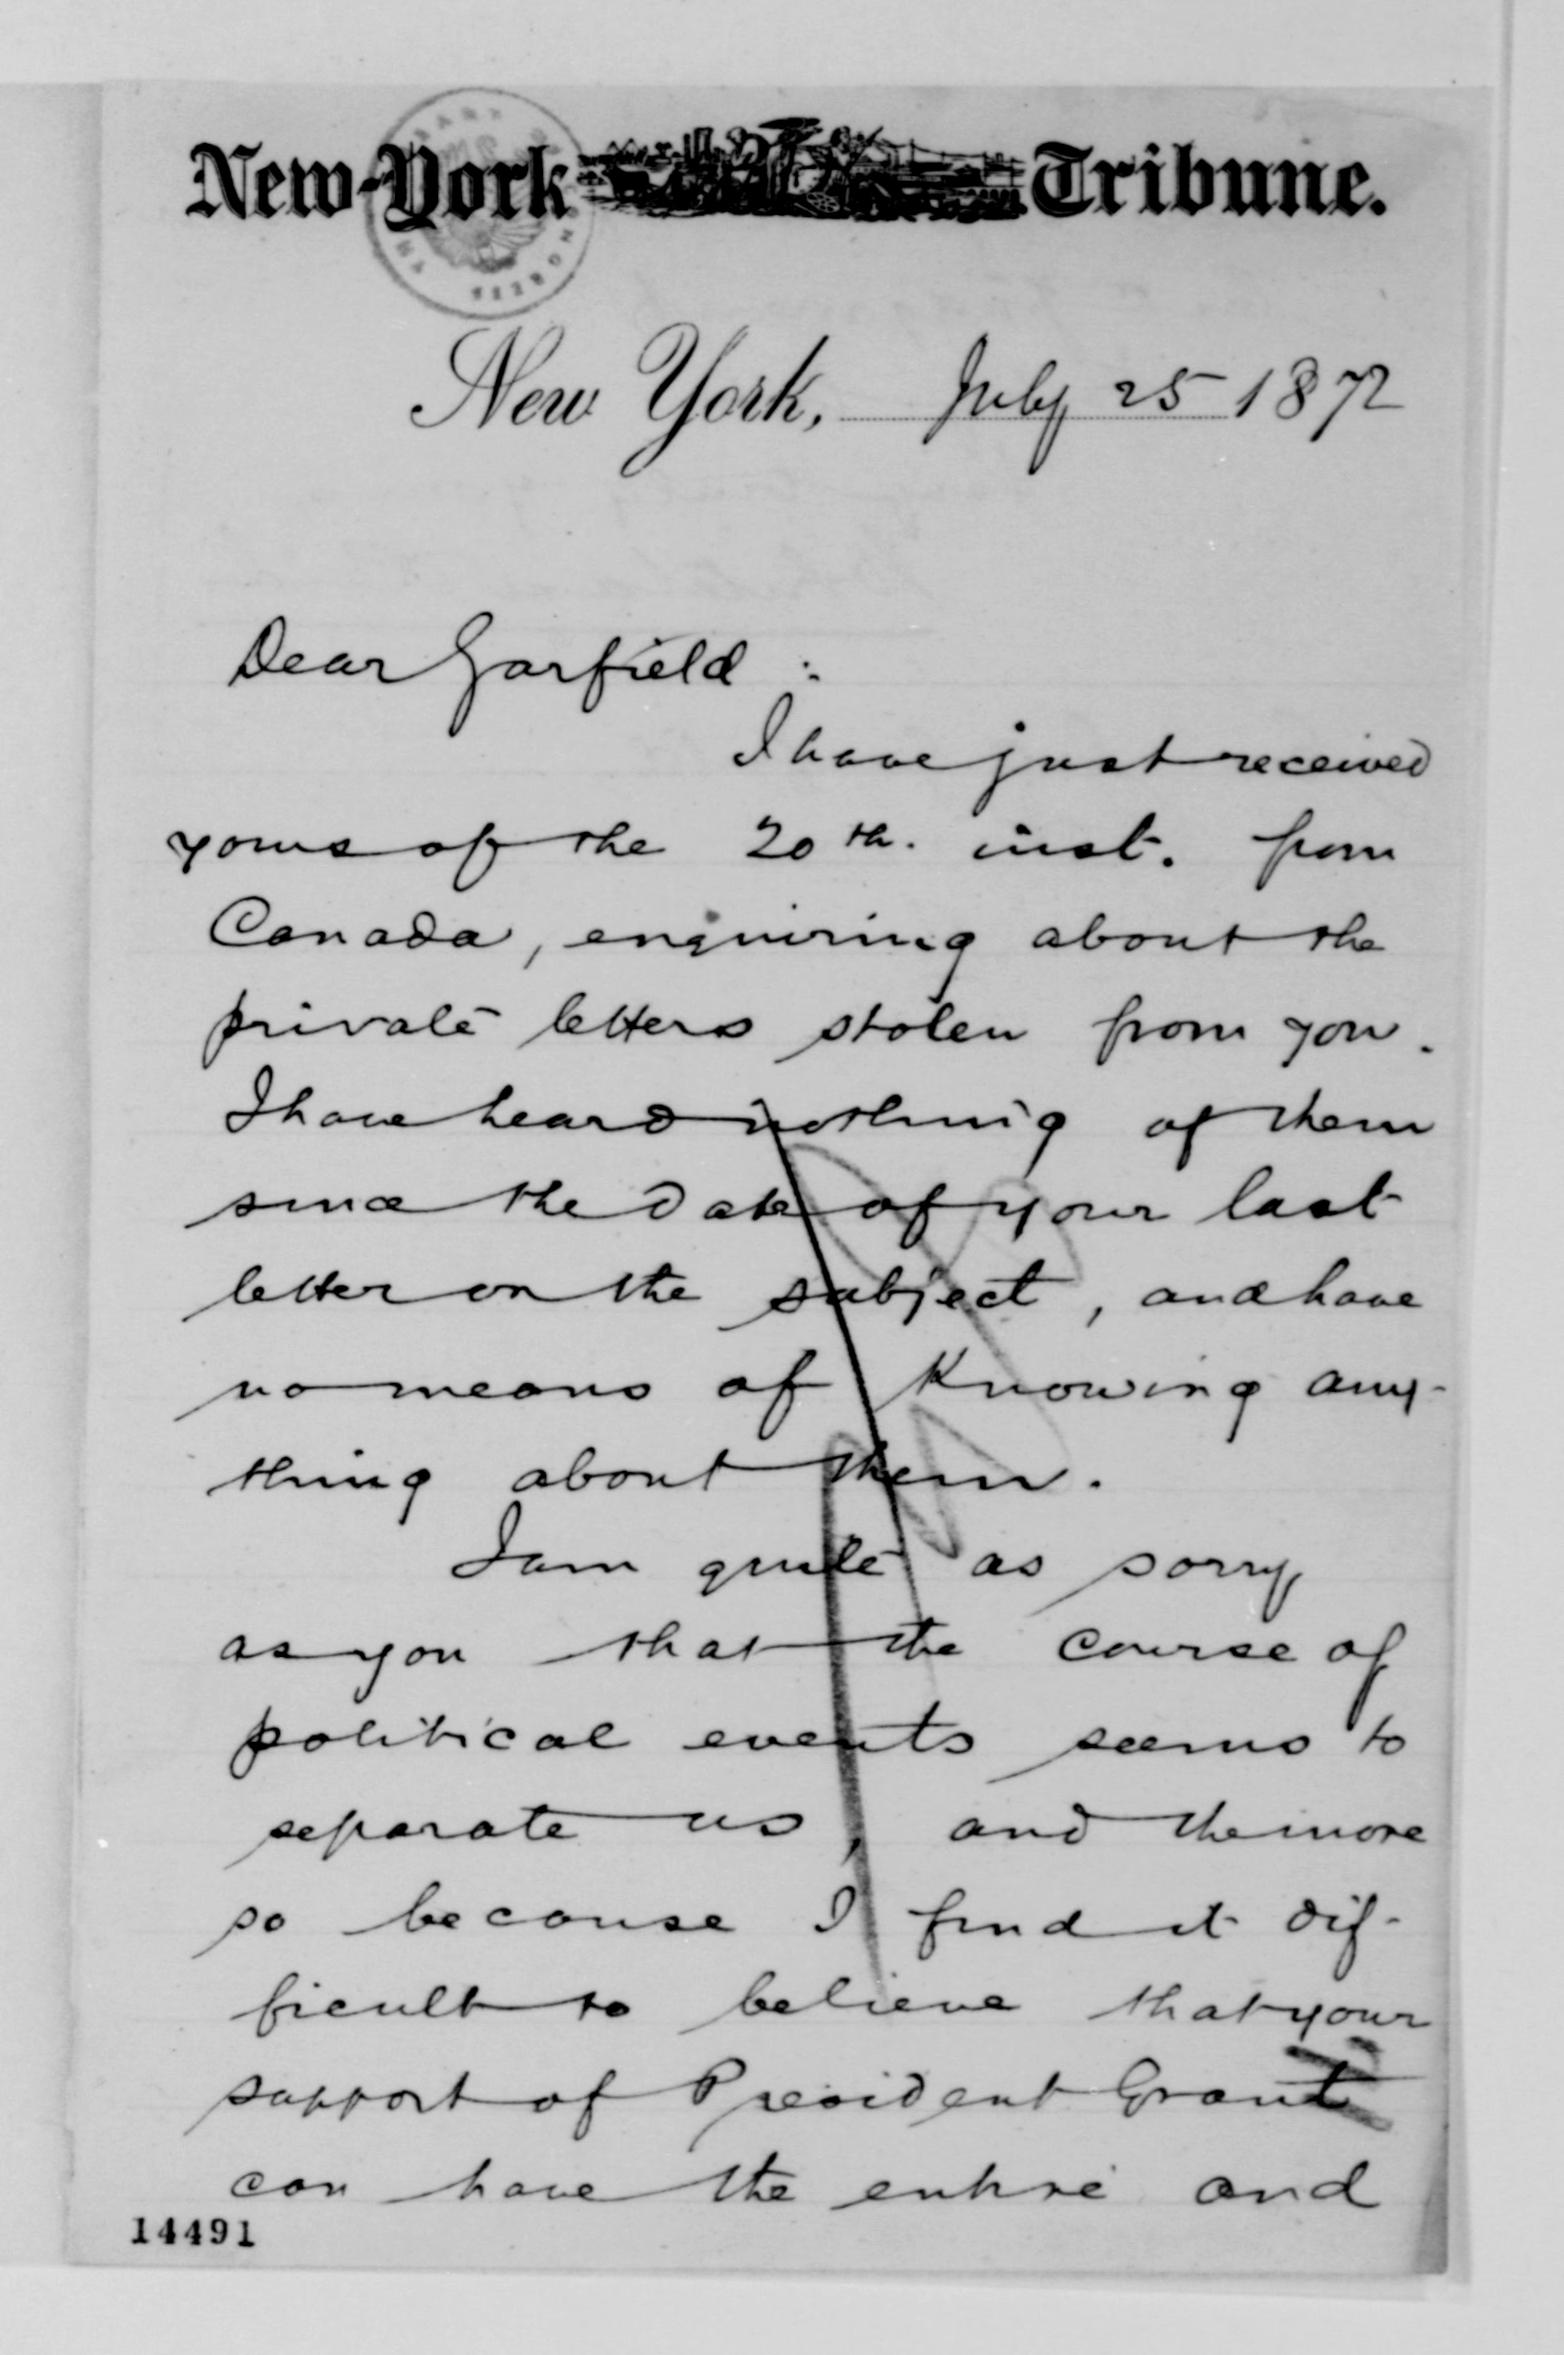 New-York Tribune.
New York, July 25 1872
Dear Garfield :
I have just received
yours of the 20th. inst. from
Canada, enquiring about the
private letters stolen from you.
I have heard nothing of them
since the date of your last
letter on the subject, and have
no means of knowing any-
thing about them.
I am quite as sorry
as you that the course of
political events seems to
separate us, and the more
so because I find it dif-
ficult to believe that your
support of President Grant
can have the entire and
14491